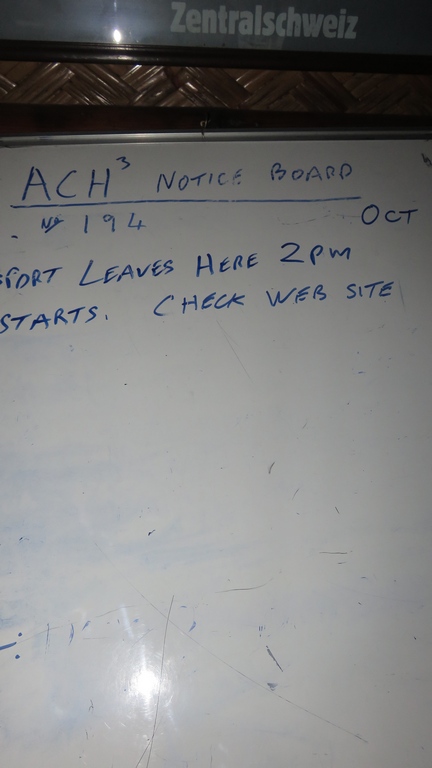 Zentralschweiz
ACH³ NOTICE BOARD
Nº 194 OCT
LEAVES HERE 2PM
STARTS. CHECK WEB SITE